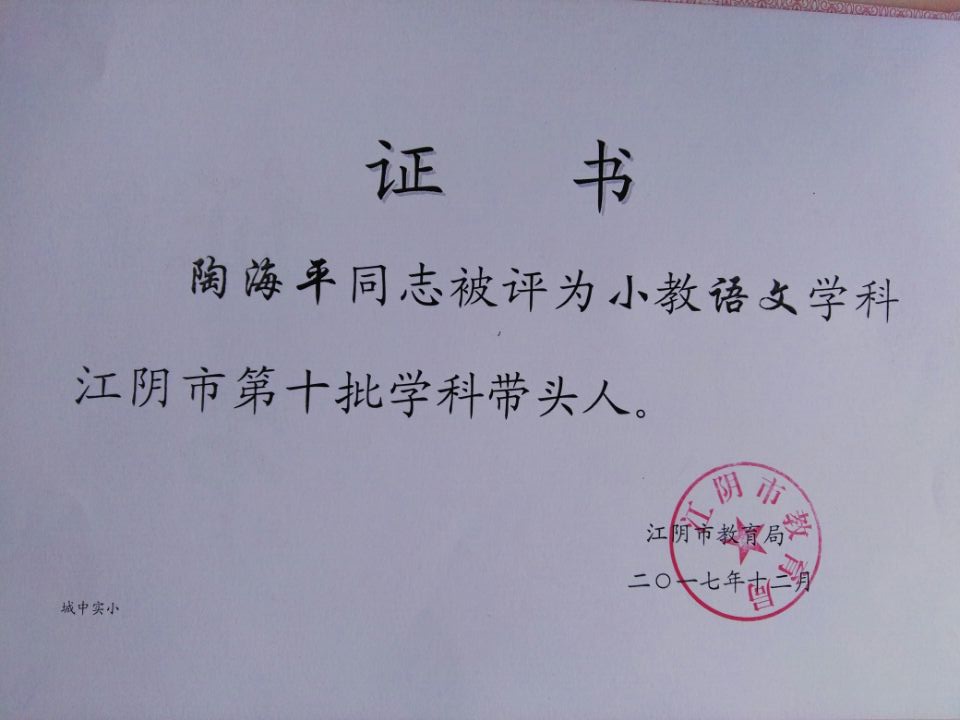 证 书
陶海平同志被评为小教语文学科
江阴市第十批学科带头人。
江阴市教育局
江阴市教育局
二〇一七年十二月
城中实小